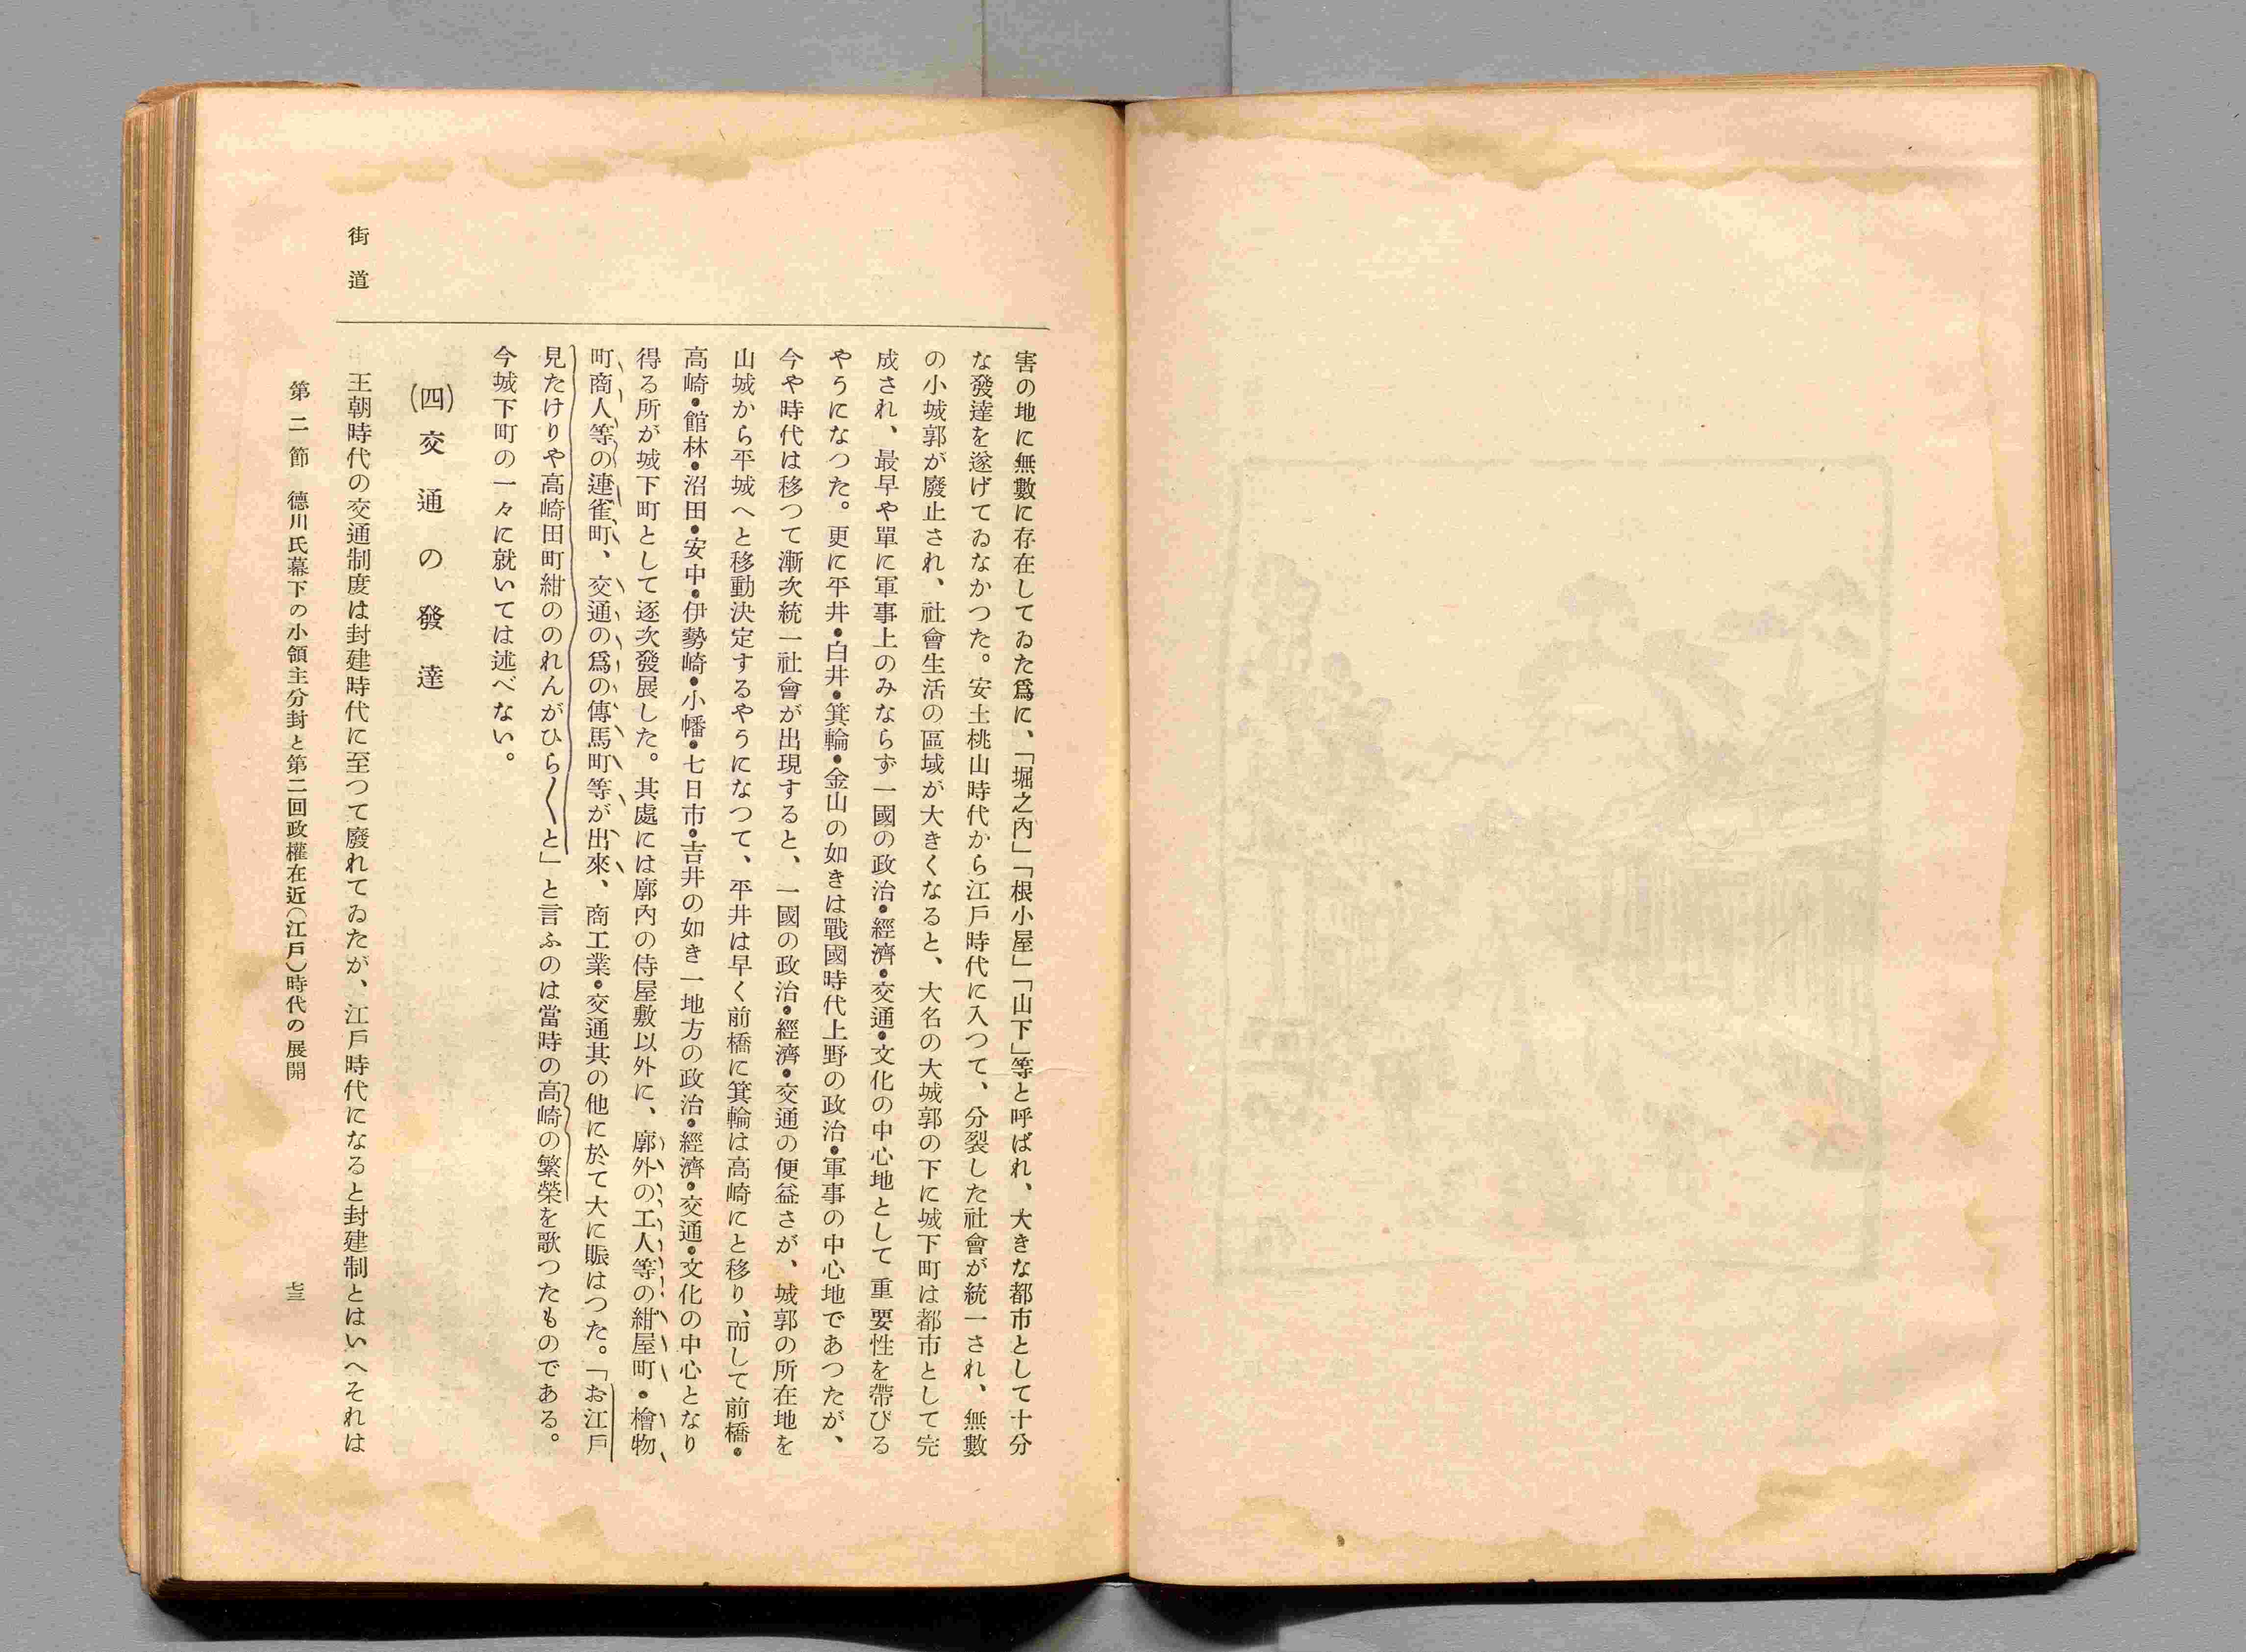 害の地に無數に存在してゐた爲に、「堀之內」「根小屋」「山下」等と呼ばれ、大きな都市として十分
な發達を遂げてゐなかつた。安土桃山時代から江戶時代に入つて、分裂した社會が統一され、無數
の小城郭が廢止され、社會生活の區域が大きくなると、大名の大城郭の下に城下町は都市として完
成され、最早や單に軍事上のみならず一國の政治・經濟・交通・文化の中心地として重要性を帶びる
やうになつた。更に平井・白井・箕輪・金山の如きは戰國時代上野の政治・軍事の中心地であつたが、
今や時代は移つて漸次統一社會が出現すると、一國の政治・經濟・交通の便益さが、城郭の所在地を
山城から平城へと移動決定するやうになつて、平井は早く前橋に箕輪は高崎にと移り、而して前橋・
高崎・館林・沼田・安中・伊勢崎・小幡・七日市・吉井の如き一地方の政治・經濟・交通・文化の中心となり
得る所が城下町として逐次發展した。其處には廓內の侍屋敷以外に、廓外の工人等の紺屋町・檜物
町商人等の連雀町、交通の爲の傳馬町等が出來、商工業・交通其の他に於て大に賑はつた。「お江戶
見たけりや高崎田町紺ののれんがひら〱と」と言ふのは當時の高崎の繁榮を歌つたものである。
今城下町の一々に就いては述べない。
(四)交通の發達
街道
王朝時代の交通制度は封建時代に至つて廢れてゐたが、江戶時代になると封建制とはいへそれは
第二節 德川氏幕下の小領主分封と第二回政權在近(江戶)時代の展開
七三